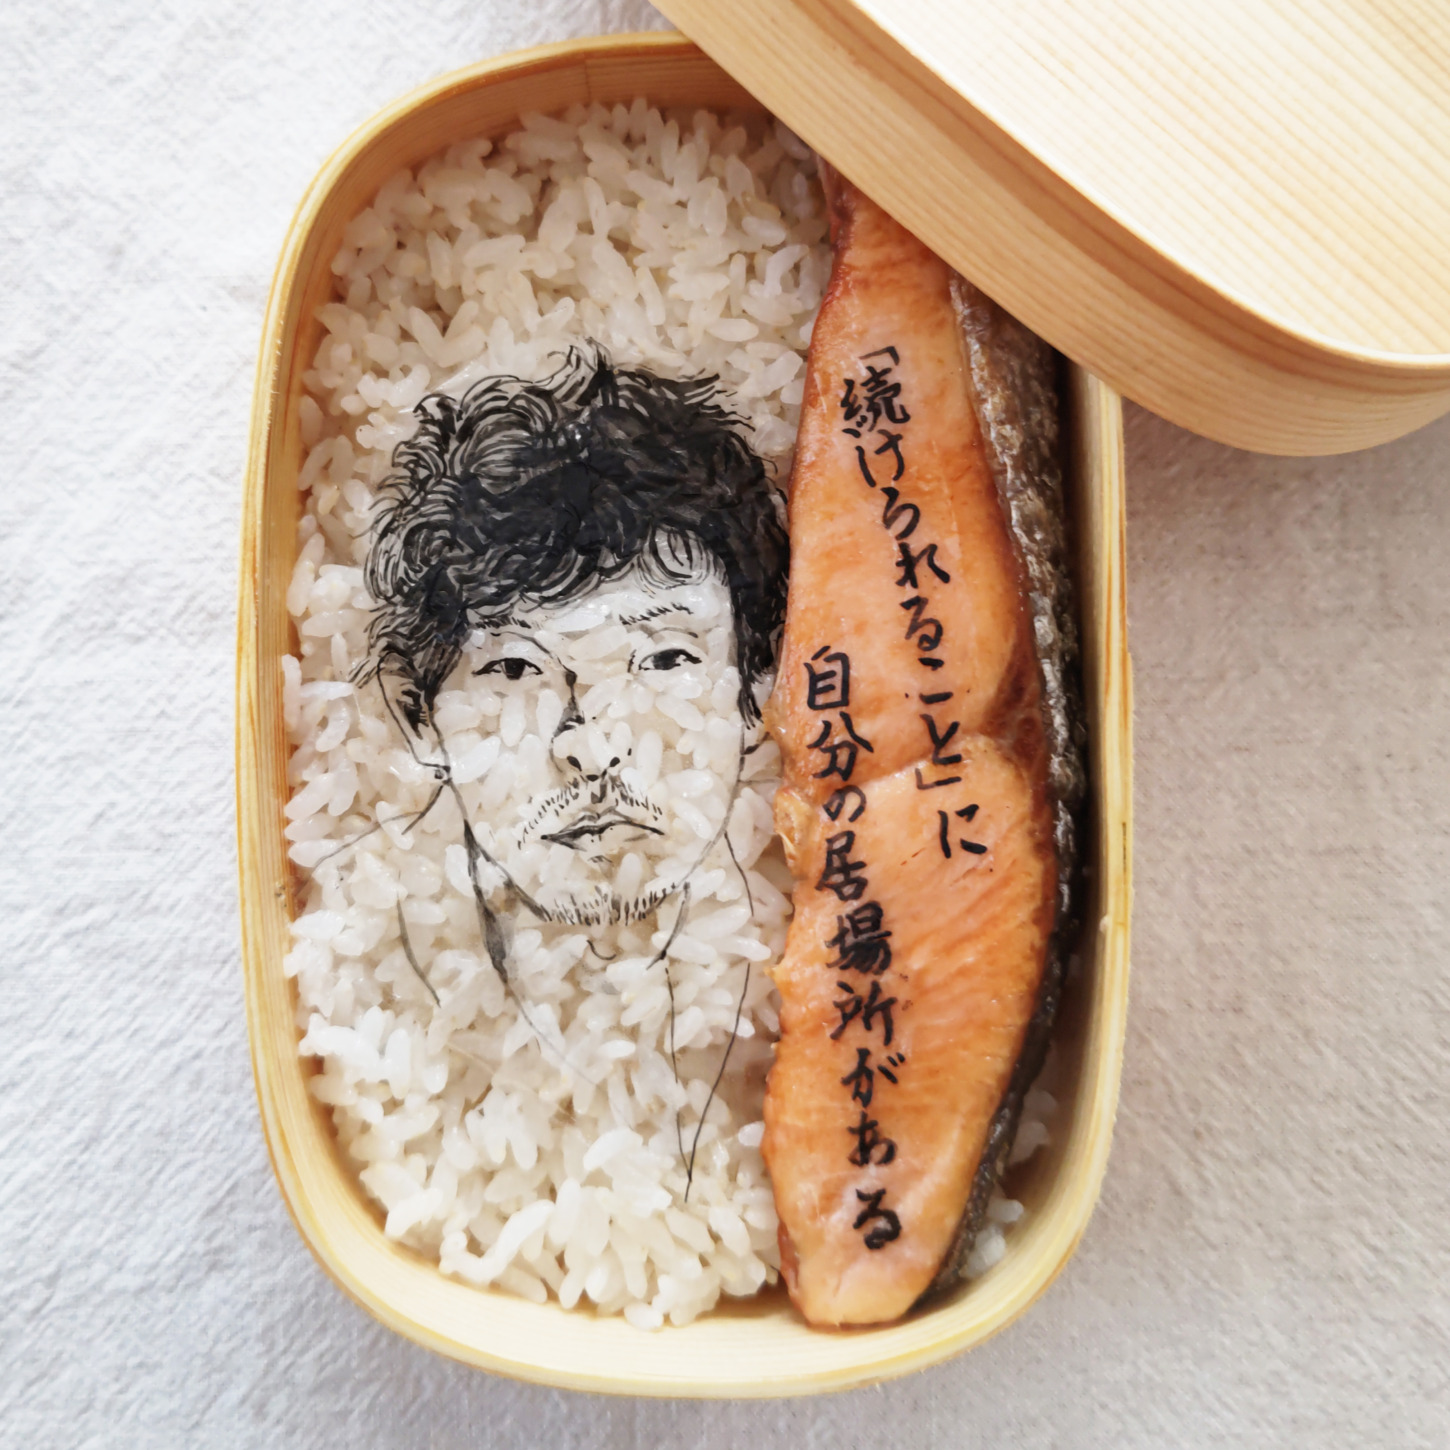 「続けられること」に
自分の居場所がある